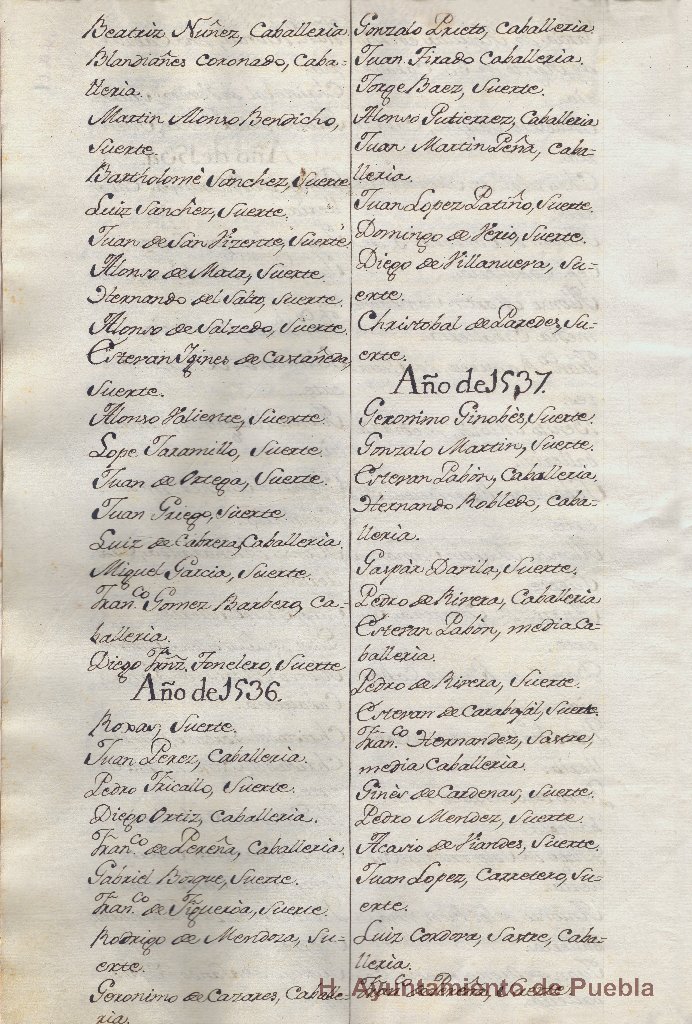 Beatriz Nuñez, Caballeria.
Blandiañes Coronado, Caba-
lleria.
Martin Alonso Bendicho,
Suerte.
Bartholomè Sanchez, Suerte
Luiz Sanchez, Suerte.
Juan de San Vizente, Suerte,
Alonso de Mata, Suerte.
Hernando del Salto, Suerte.
Alonso de Salzedo, Suerte.
Estevan Ygines de Castañeda,
Suerte.
Alonso Valiente, Suerte.
Lope Jaramillo, Suerte.
Juan de Ortega, Suerte.
Juan Griego, Suerte.
Luiz de Cabrera, Caballeria.
Miguel Garcia, Suerte.
Fran.co Gomez Barbero, Ca-
balleria.
Diego Frñz. Tonelero, Suerte
Año de 1536.
Roxas, Suerte.
Juan Perez, Caballeria.
Pedro Tricallo, Suerte.
Diego Ortiz, Caballeria.
Fran.co de Pereña, Caballeria.
Gabriel Bosque, Suerte.
Fran.co de Figueròa, Suerte.
Rodrigo de Mendoza, Su-
erte.
Geronimo de Cazares, Caballe-
ria.
Gonzalo Prieto, Caballeria.
Juan Tirado Caballeria.
Jorge Baez, Suerte.
Alonso Gutierrez, Caballeria
Juan Martin Peña, Caba-
lleria.
Juan Lopez Patiño, Suerte.
Domingo de Verio, Suerte.
Diego de Villanueva, Su-
erte.
Christobal de Paredes, Su-
erte.
Año de 1537.
Geronimo Ginobès, Suerte.
Gonzalo Martin, Suerte.
Estevan Pabòn, Caballeria.
Hernando Robledo, Caba-
lleria.
Gaspàr Davila, Suerte.
Pedro de Rivera, Caballeria
Estevan Pabòn, media Ca-
balleria.
Pedro de Rivera, Suerte.
Estevan de Carabajàl, Suerte.
Fran.co Hernandez, Sastre,
media Caballeria.
Ginès de Cardenas, Suerte.
Pedro Mendez, Suerte.
Acasio de Viandes, Suerte.
Juan Lopez, Carretero, Su-
erte.
Luiz Cordova, Sastre, Caba-
lleria.
Suerte.
H. Ayuntamiento de Puebla